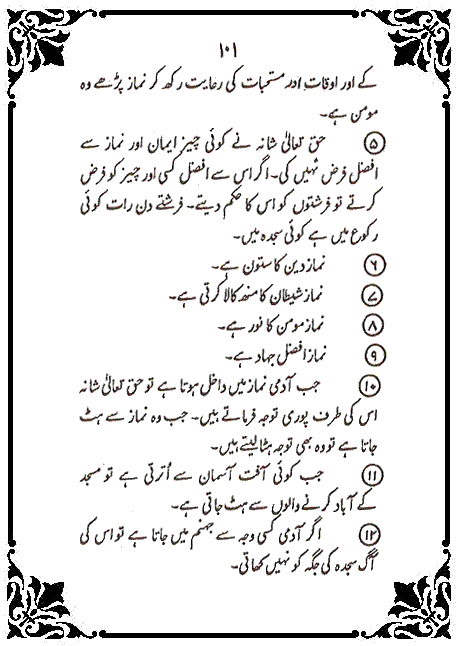 ۱۰۱
کے اور اوقات اور مستحبات کی رعایت رکھ کر نماز پڑھے وہ
مومن ہے۔
۵ حق تعالیٰ شانہ نے کوئی چیز ایمان اور نماز سے
افضل فرض نہیں کی۔ اگر اس سے افضل کسی اور چیز کو فرض
کرتے تو فرشتوں کو اس کا حکم دیتے۔ فرشتے دن رات کوئی
رکوع میں ہے کوئی سجدہ میں۔
۶ نماز دین کا ستون ہے۔
۷ نماز شیطان کا منھ کالا کرتی ہے۔
۸ نماز مومن کا نور ہے۔
۹ نماز افضل جہاد ہے۔
۱۰ جب آدمی نماز میں داخل ہوتا ہے تو حق تعالیٰ شانہ
اس کی طرف پوری توجہ فرماتے ہیں۔ جب وہ نماز سے ہٹ
جاتا ہے تو وہ بھی توجہ ہٹا لیتے ہیں۔
۱۱ جب کوئی آفت آسمان سے اُترتی ہے تو مسجد
کے آباد کرنے والوں سے ہٹ جاتی ہے۔
۱۲ اگر آدمی کسی وجہ سے جہنم میں جاتا ہے تو اس کی
آگ سجدہ کی جگہ کو نہیں کھاتی۔